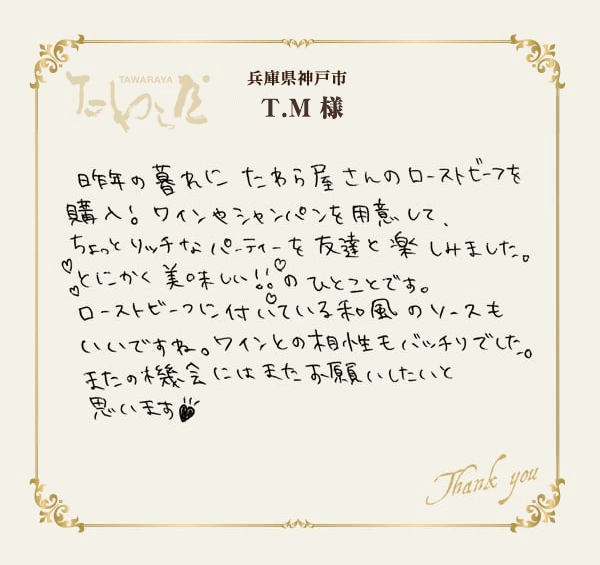 TAWARAYA
たわらや
兵庫県神戸市
T.M 様
昨年の暮れに たわら屋さんのローストビーフを
購入! ワインやシャンパンを用意して、
ちょっとリッチなパーティーを友達と楽しみました。
♡とにかく美味しい!!♡の ひとことです。
ローストビーフに付いている和風のソースも
いいですね。ワインとの相性もバッチリでした。
またの機会にはまたお願いしたいと
思います♥
Thank you